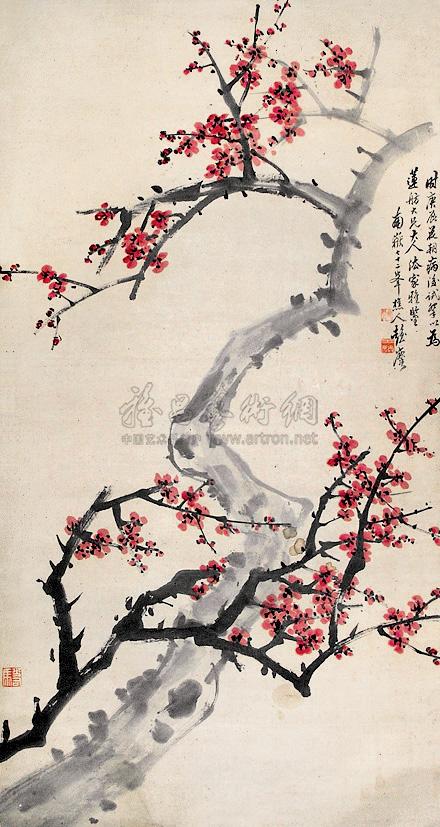 時庚辰花朝病後試筆以為
蓮舫大兄大人法家雅鑒
南嶽七十二峯樵人彭麐
雅昌藝術網
中国艺术品
www.artron.net